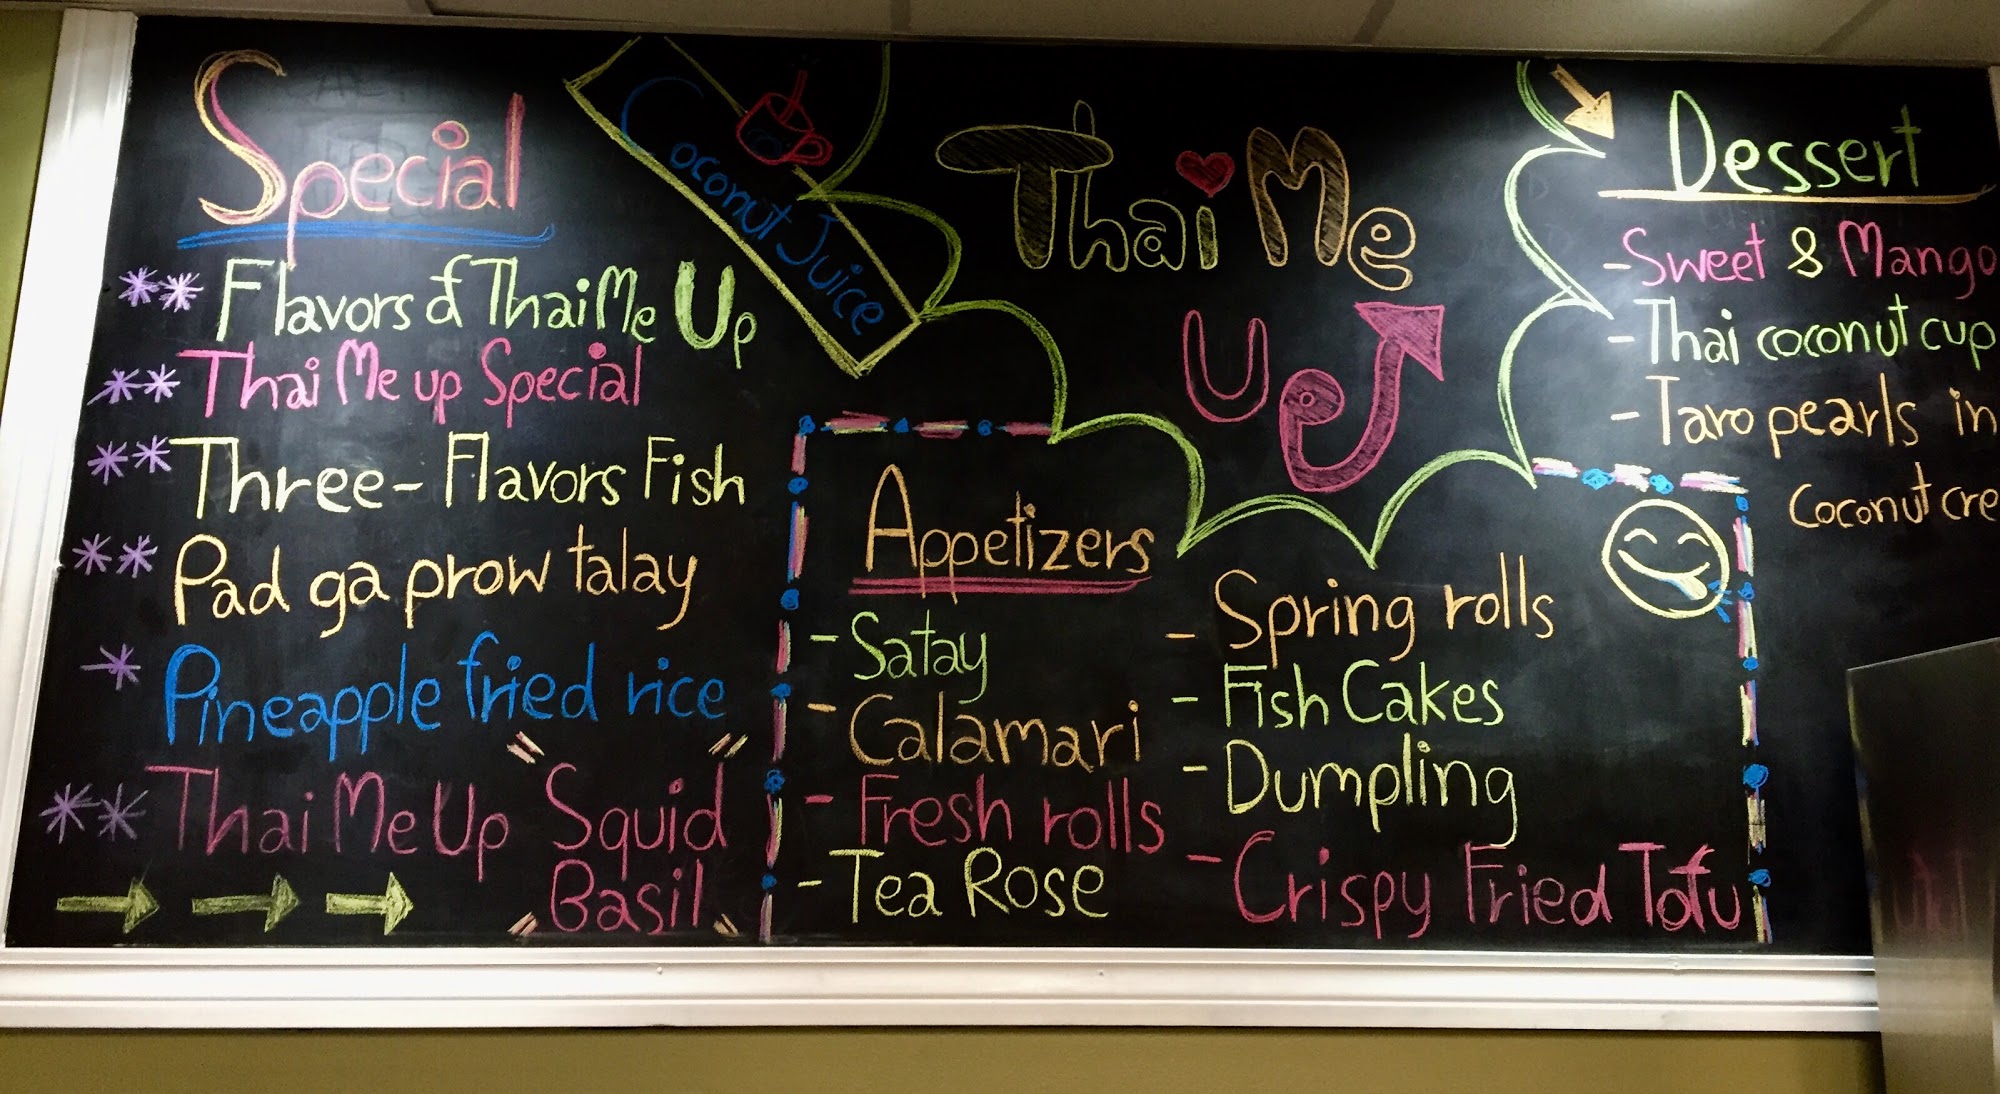 Special
** Flavors of Thai Me Up
** Thai Me up Special
** Three-Flavors Fish
** Pad ga prow talay
* Pineapple fried rice
** Thai Me Up Squid
Basil
Coconut Juice
Thai Me
Up
Appetizers
- Satay
- Calamari
- Fresh rolls
- Tea Rose
- Spring rolls
- Fish Cakes
- Dumpling
- Crispy Fried Tofu
Dessert
- Sweet & Mango
- Thai coconut cup
- Taro pearls in
Coconut cre